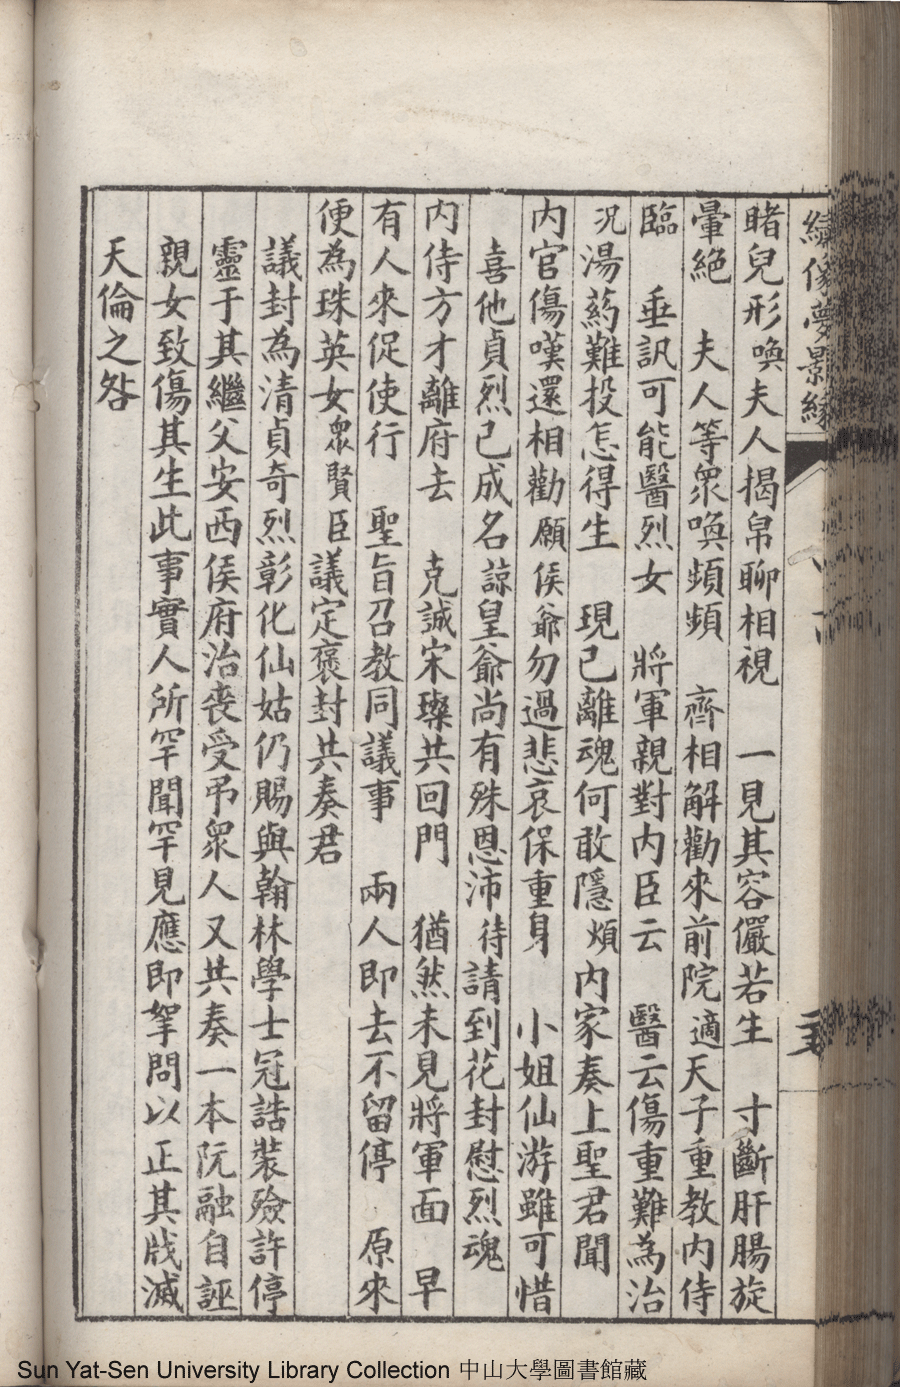 繡像夢影緣
睹兒形喚夫人揭帛聊相視　一見其容儼若生　寸斷肝腸旋
暈絕　夫人等衆喚頻頻　齊相解勸來前院適天子重教內侍
臨　垂訊可能醫烈女　將軍親對內臣云　醫云傷重難為治
况湯葯難投怎得生　現已離魂何敢隱煩內家奏上聖君聞
內官傷嘆還相勸願侯爺勿過悲哀保重身　小姐仙游雖可惜
喜他貞烈已成名諒皇爺尚有殊恩沛待請到花封慰烈魂
內侍方才離府去　克誠宋璨共回門　猶然未見將軍面　早
有人來促使行　聖旨召教同議事　兩人即去不留停　原來
便為珠英女衆賢臣議定褒封共奏君
議封為清貞奇烈彰化仙姑仍賜與翰林學士冠誥裝殮許停
靈于其繼父安西侯府治喪受弔衆人又共奏一本阮融自誣
親女致傷其生此事實人所罕聞罕見應即拏問以正其戕滅
天倫之咎